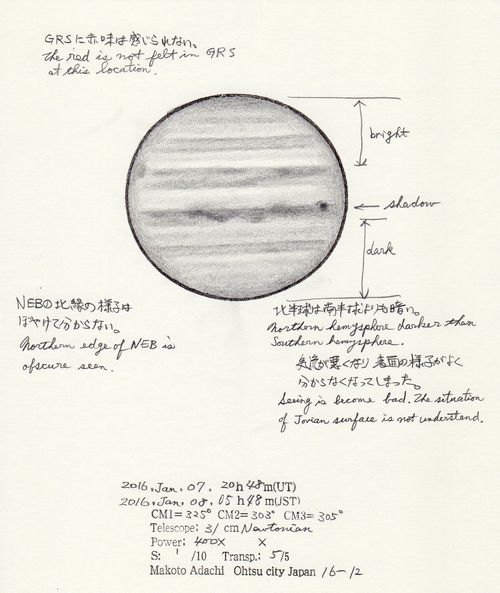 GRSに赤味は感じられない。
The red is not felt in GRS
at this location.
bright
shadow
dark
NEBの北縁の様子は
ぼやけて分からない。
Northern edge of NEB is
obscure seen.
北半球は南半球よりも暗い。
Northern hemysphere darker than
Southern hemysphere.
気流が悪くなり表面の様子がよく
分からなくなってしまった。
Seeing is become bad. The situation
of Jovian surface is not understand.
2016, Jan, 07, 20h48m(UT)
2016, Jan, 08, 05h48m(JST)
CM1=325° CM2=303° CM3=305°
Telescope: 31 cm Newtonian
Power: 400X X
S: 1 /10 Transp.: 5/5
Makoto Adachi Ohtsu city Japan 16-12